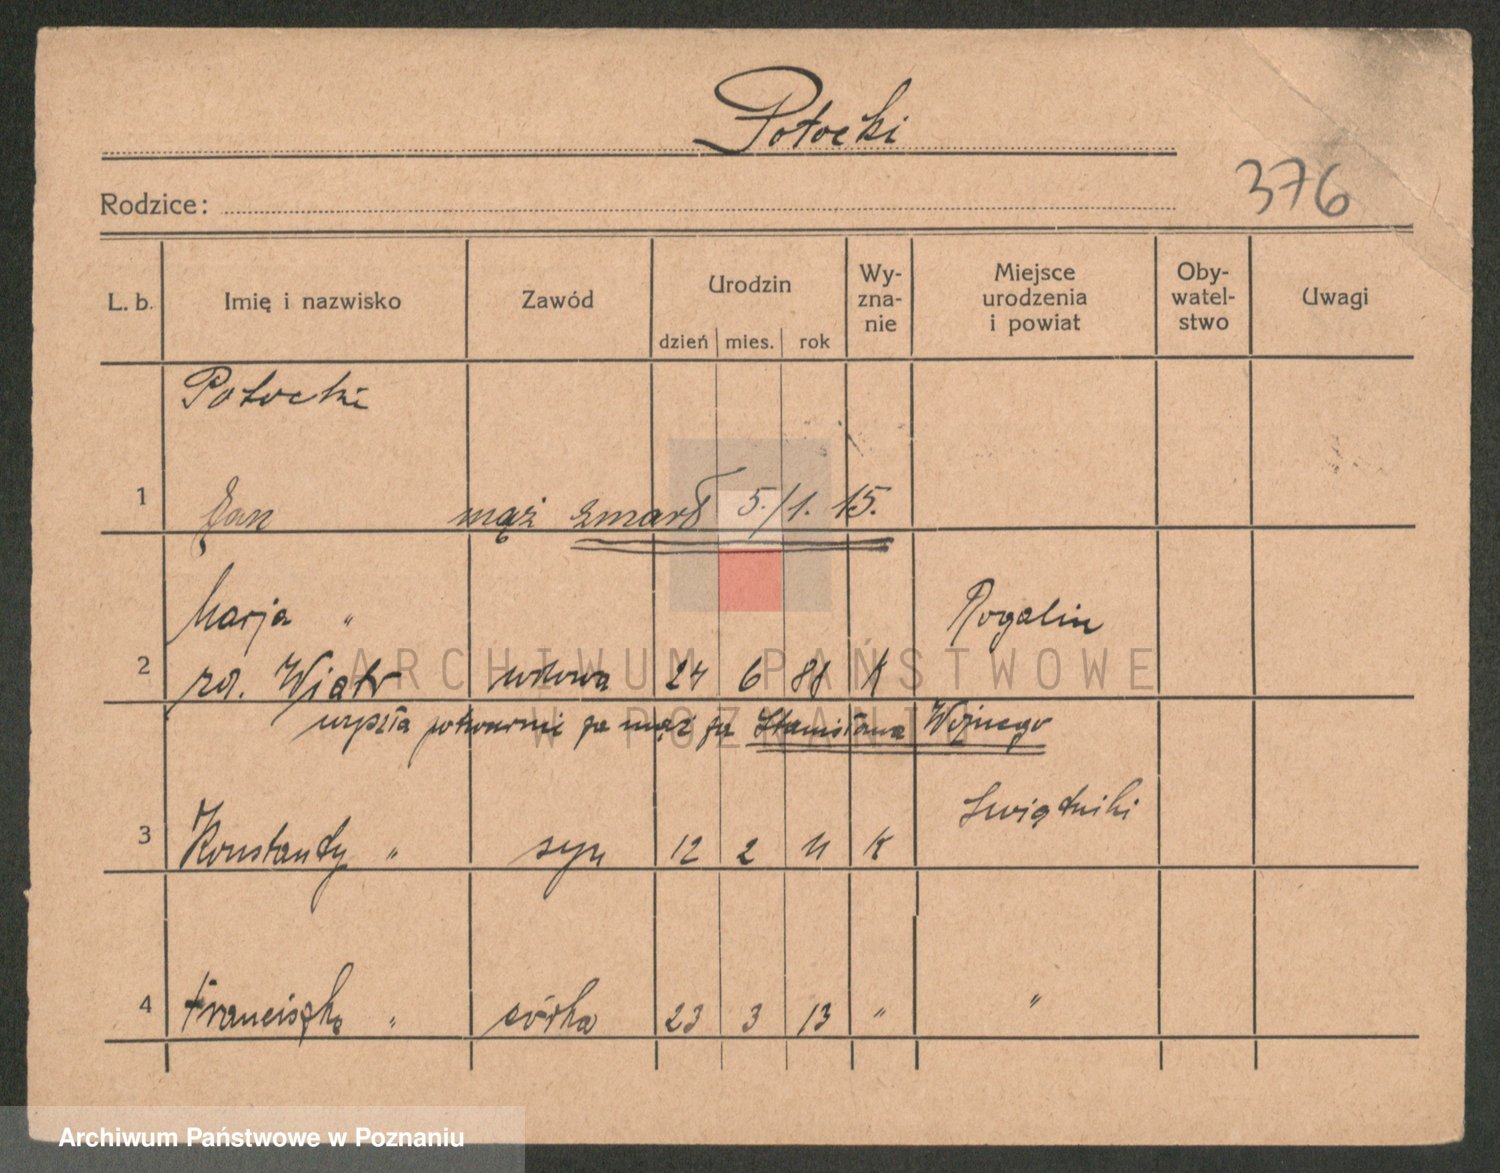 Potocki
376
Rodzice:
L. b. Imię i nazwisko Zawód Urodzin dzień mies. rok Wy-zna-nie Miejsce urodzenia i powiat Oby-watel-stwo Uwagi
Potocki
1 Jan mąż zmarł 5./1. 15.
Marja " Rogalin
2 rd. Wiatr wdowa 24 6 88 K
wyszła powtórnie za mąż za Stanisława Woźnego
Świątniki
3 Konstanty " syn 12 2 11 K
4 Franciszka " córka 23 3 13 " "
ARCHIWUM PAŃSTWOWE
W POZNANIU
Archiwum Państwowe w Poznaniu